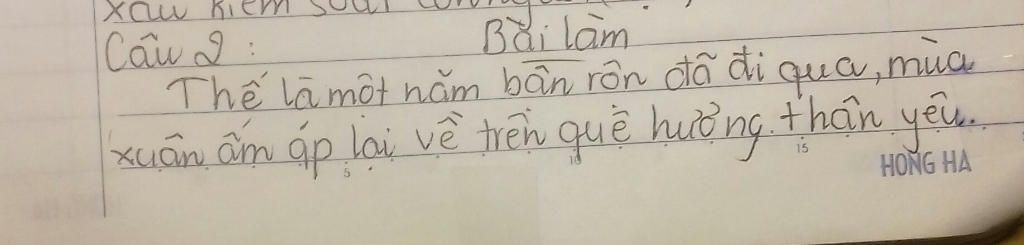 xấu kiểm soát
Câu 2 : Bài làm
Thế là một năm bận rộn đã đi qua, mùa
xuân ấm áp lại về trên quê hương thân yêu.
5 10 15
HONG HA